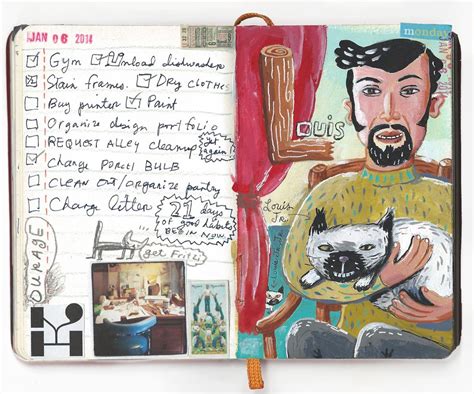 JAN 06 2014
Gym Unload dishwasher
Stain frames. Dry CLOTHES
Buy printer Paint
Organize design portfolio
REQUEST ALLEY cleanup
yet again!
Change PORCH BULB
CLEAN OUT/organize pantry
Change litter
21 days
OF good habits
BEGIN NOW.
get Fritz
COURAGE
monday
JAN 06
Louis
Louis Jr.